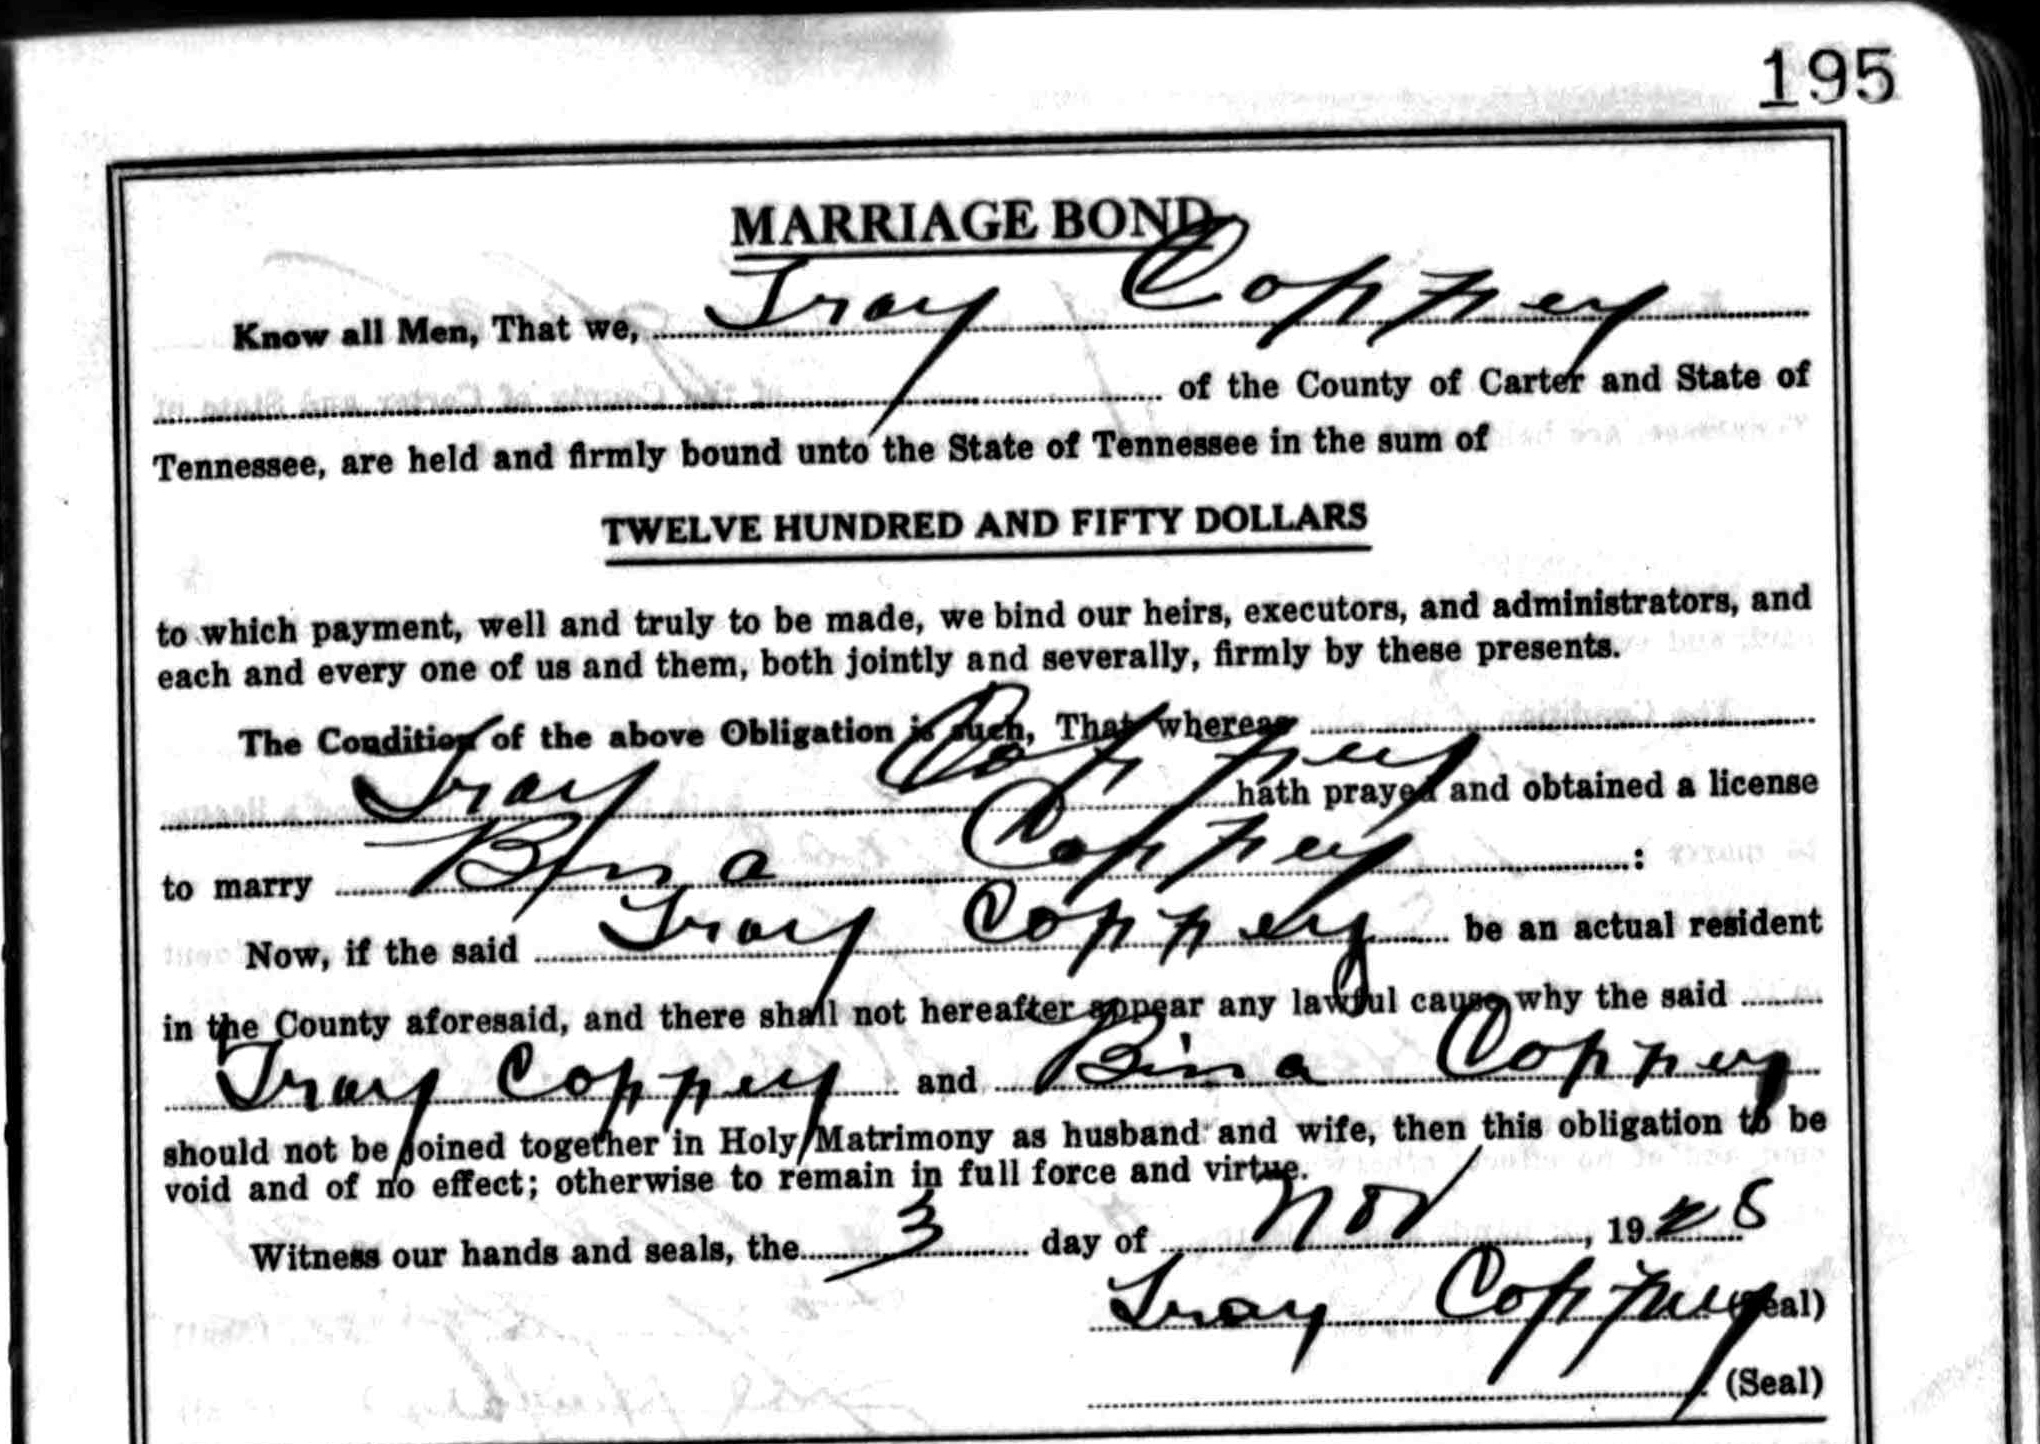 195
MARRIAGE BOND
Know all Men, That we, Troy Coppey
of the County of Carter and State of
Tennessee, are held and firmly bound unto the State of Tennessee in the sum of
TWELVE HUNDRED AND FIFTY DOLLARS
to which payment, well and truly to be made, we bind our heirs, executors, and administrators, and
each and every one of us and them, both jointly and severally, firmly by these presents.
The Condition of the above Obligation is such, That whereas
Troy Coppey hath prayed and obtained a license
to marry Bina Coppey :
Now, if the said Troy Coppey be an actual resident
in the County aforesaid, and there shall not hereafter appear any lawful cause why the said
Troy Coppey and Bina Coppey
should not be joined together in Holy Matrimony as husband and wife, then this obligation to be
void and of no effect; otherwise to remain in full force and virtue.
Witness our hands and seals, the 3 day of Nov, 1928
Troy Coppey (Seal)
(Seal)